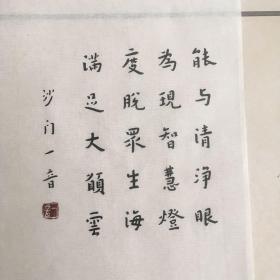 能与清淨眼
為現智慧燈
度脫眾生海
滿足大願雲
沙門一音